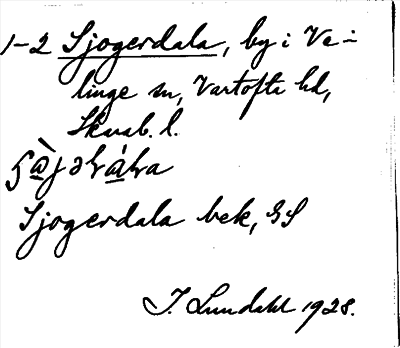 1-2 Sjogerdala, by i Ve-
linge sn, Vartofta hd,
Skarab. l.
Sjogerdala bek, GS
J. Lundahl 1928.